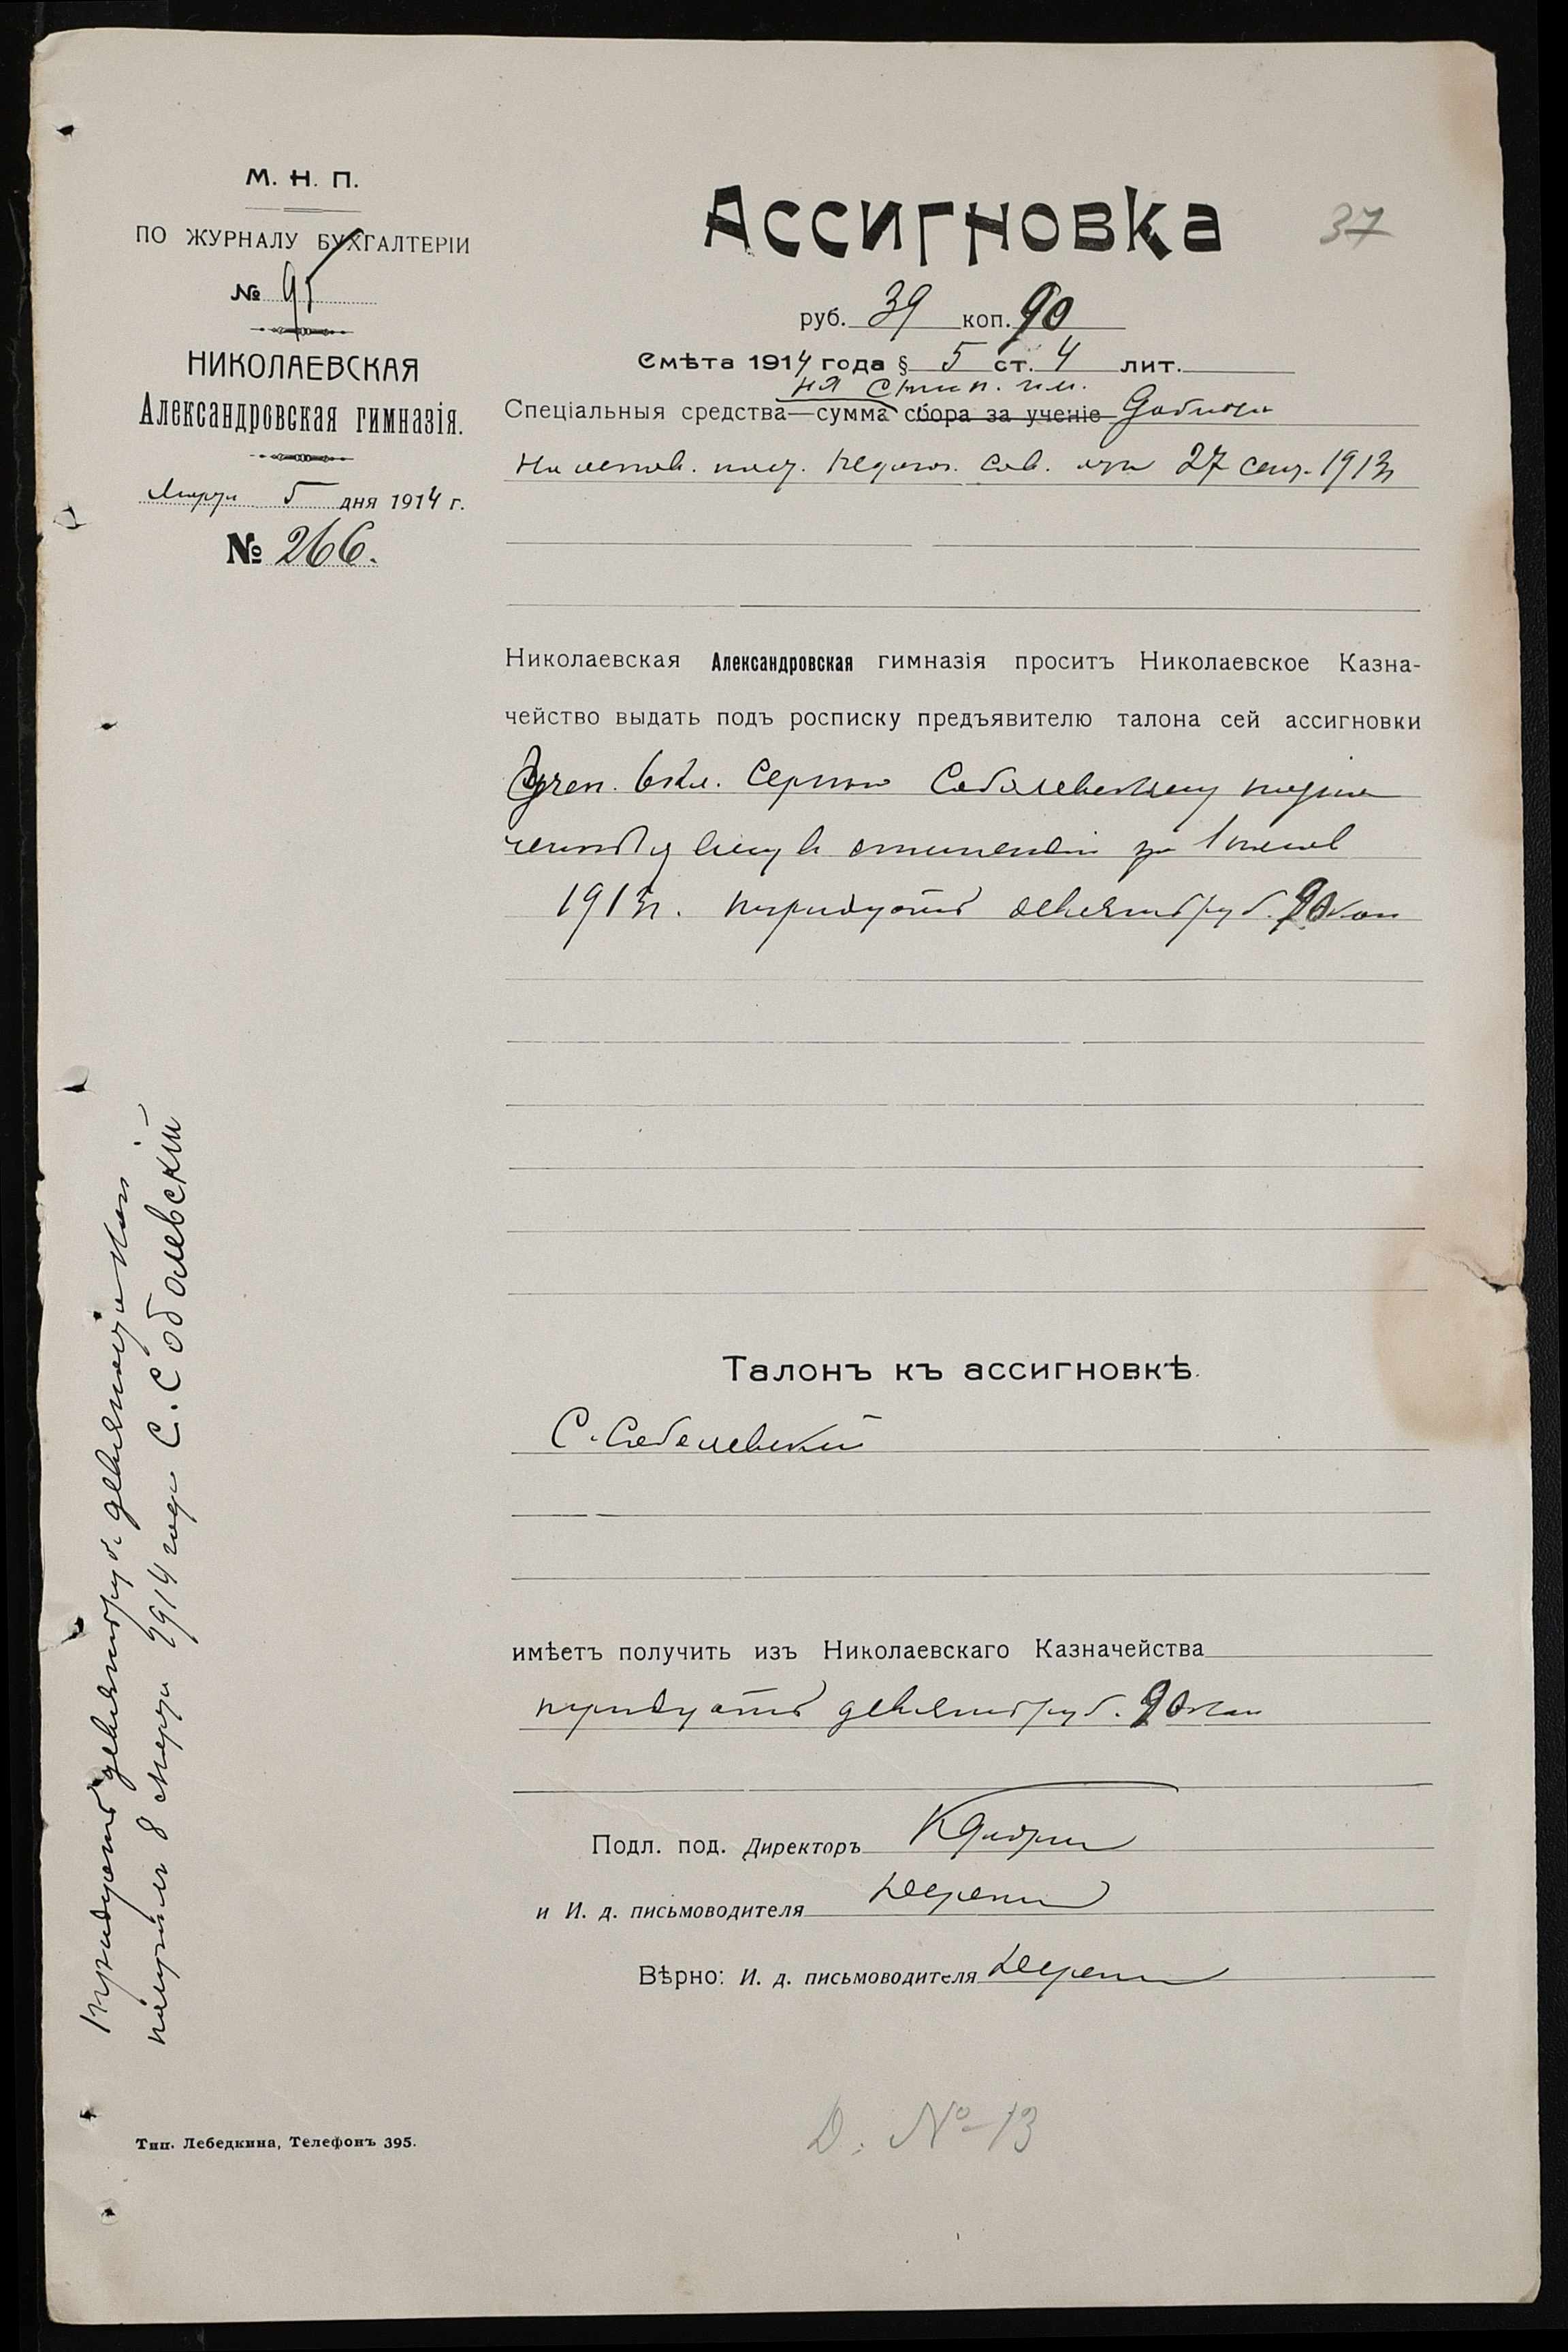 М. Н. П.
ПО ЖУРНАЛУ БУХГАЛТЕРІИ
№ 95
НИКОЛАЕВСКАЯ
Александровская гимназія.
Марта 5 дня 1914 г.
№ 266.
Ассигновка
37
руб. 39 коп. 90
Смѣта 1914 года § 5 ст. 4 лит.
на стип. им.
Спеціальныя средства—сумма сбора за ученіе
На основ. пост. педагог. сов. отъ 27 сент. 1913 г.
Николаевская Александровская гимназія проситъ Николаевское Казна-
чейство выдать подъ росписку предъявителю талона сей ассигновки
учен. 6 кл. Сергѣю Соболевскому
стипендіи за 1 полов
1913 г. тридцать девять руб. 90 коп
Талонъ къ ассигновкѣ.
С. Соболевскій
имѣетъ получить изъ Николаевскаго Казначейства
тридцать девять руб. 90 коп
Подл. под. Директоръ
и И. д. письмоводителя
Вѣрно: И. д. письмоводителя
Тридцать девять руб. девяносто коп
получилъ 8 марта 1914 года С. Соболевскій
Д. № 13
Тип. Лебедкина, Телефонъ 395.